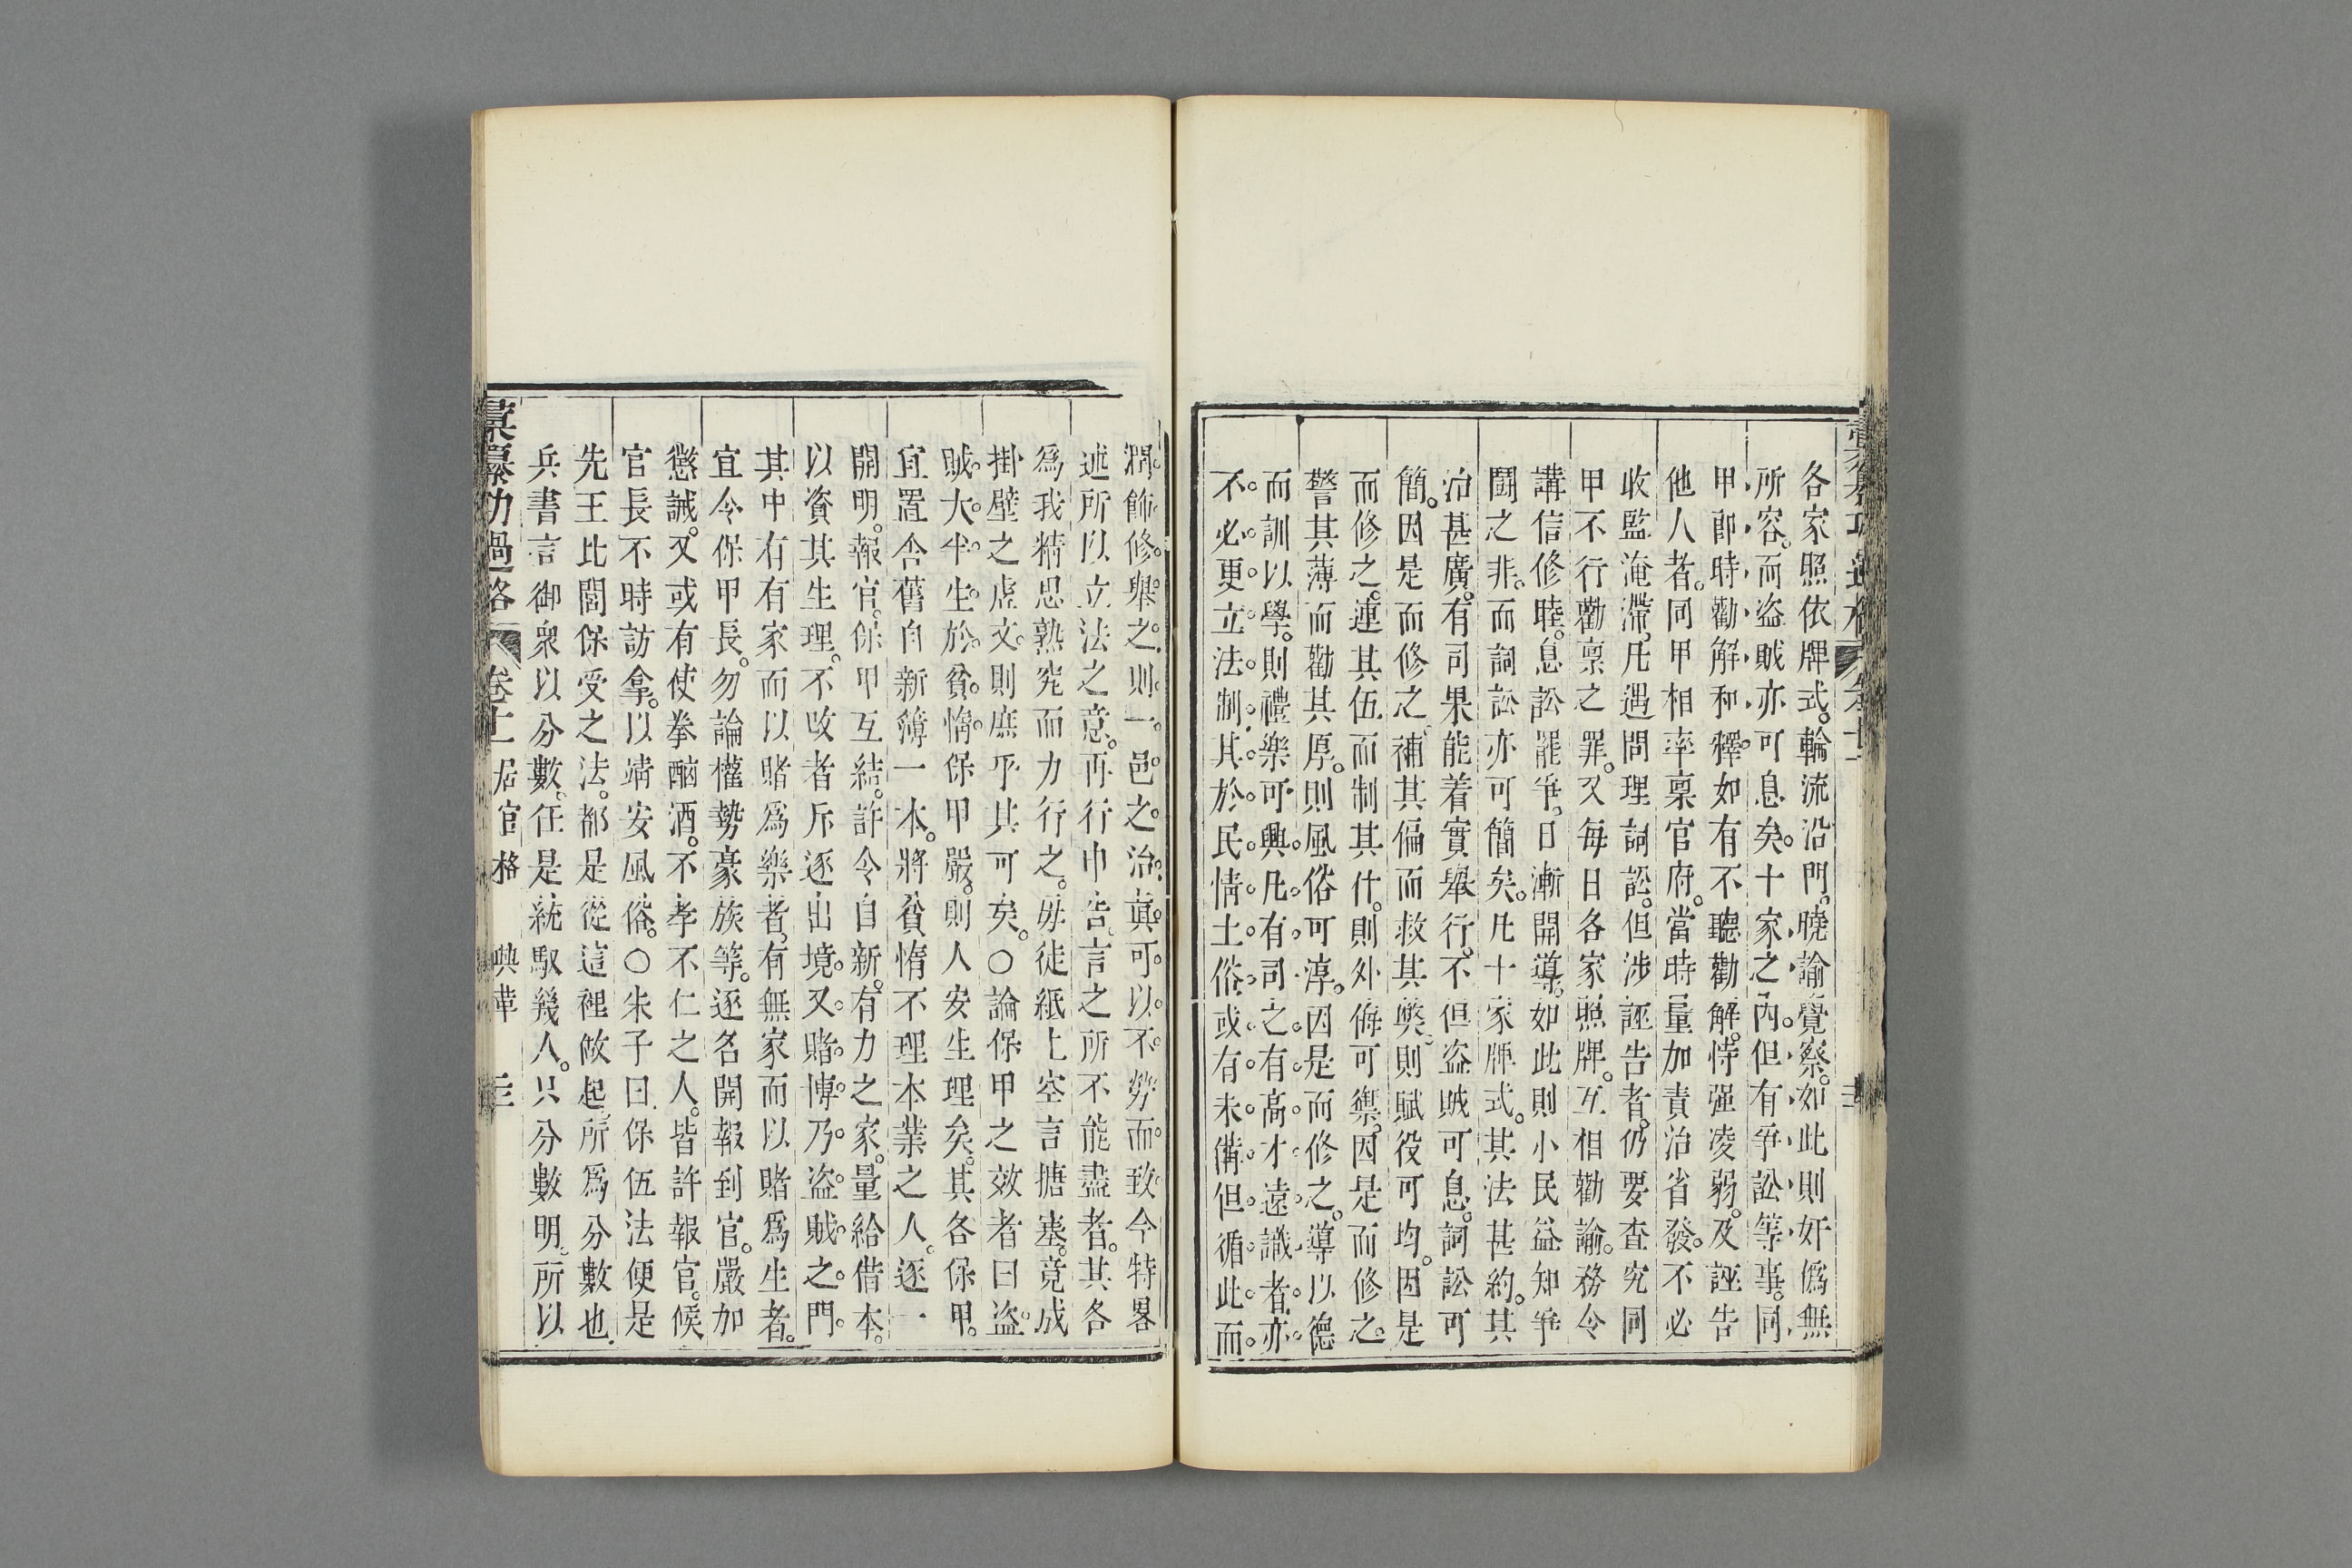 各家照依牌式。輪流沿門。曉諭覺察。如此則奸僞無
所容。而盜賊亦可息矣。十家之內。但有爭訟等事。同
甲卽時勸解和釋。如有不聽勸解。恃强凌弱。及誣告
他人者。同甲相率稟官府。當時量加責治省發。不必
收監淹滯。凡遇問理詞訟。但涉誣告者。仍要查究同
甲不行勸稟之罪。又每日各家照牌。互相勸諭。務令
講信修睦。息訟罷爭。日漸開導。如此則小民益知爭
鬭之非。而詞訟亦可簡矣。凡十家牌式。其法甚約。其
治甚廣。有司果能着實舉行。不但盜賊可息。詞訟可
簡。因是而修之。補其偏而救其獘。則賦役可均。因是
而修之。連其伍而制其什。則外侮可禦。因是而修之。
警其薄而勸其厚。則風俗可淳。因是而修之。導以德
而訓以學。則禮樂可興。凡有司之有高才遠識者。亦
不必更立法制。其於民情土俗。或有未備。但循此而
潤飾修舉之。則一邑之治。眞可以不勞而致。今特畧
述所以立法之意。再行申告。言之所不能盡者。其各
爲我精思熟究而力行之。毋徒紙上空言搪塞。竟成
掛壁之虛文。則庶乎其可矣。○論保甲之效者曰。盜
賊大半生於貧惰。保甲嚴。則人安生理矣。其各保甲。
宜置舍舊自新簿一本。將貧惰不理本業之人。逐一
開明。報官。保甲互結。許令自新。有力之家。量給借本。
以資其生理。不改者斥逐出境。又賭博乃盜賊之門。
其中有有家而以賭爲樂者。有無家而以賭爲生者。
宜令保甲長。勿論權勢豪族等。逐名開報到官。嚴加
懲誡。又或有使拳酗酒。不孝不仁之人。皆許報官。候
官長不時訪拿。以靖安風俗。○朱子曰。保伍法便是
先王比閭保受之法。都是從這裡做起。所爲分數也。
兵書言御衆以分數。任是統馭幾人。只分數明。所以
彙纂功過格 卷十一 居官格 興革 三